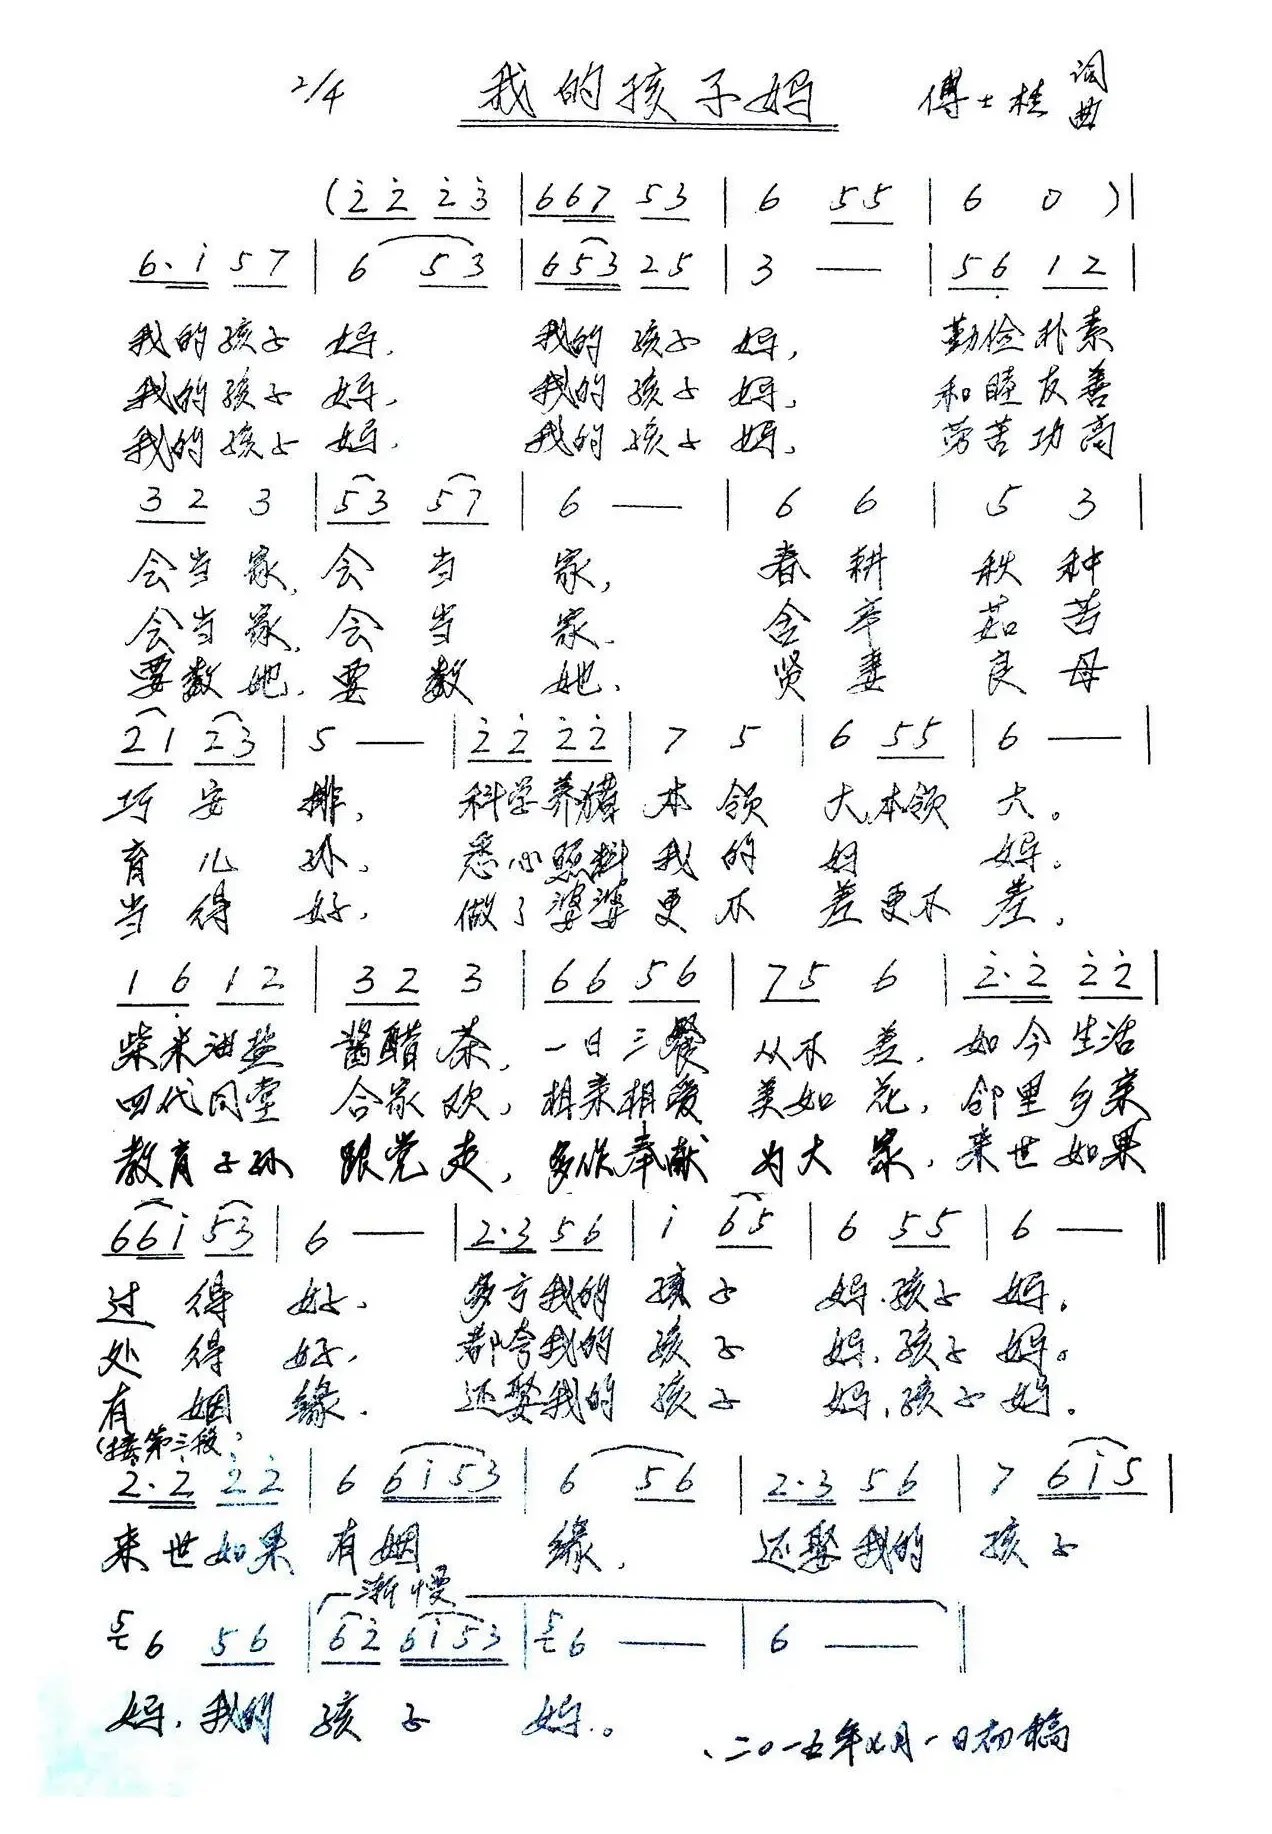 2/4 我的孩子妈 傅士桂 词曲
(2̇ 2̇ 2̇ 3̇ | 6 6 7 5 3 | 6 5 5 | 6 0 ) |
6 · i̇ 5 7 | 6 5 3 | 6 5 3 2 5 | 3 — | 5 6̣ 1 2 |
我的孩子 妈, 我的孩子 妈, 勤俭朴素
我的孩子 妈, 我的孩子 妈, 和睦友善
我的孩子 妈, 我的孩子 妈, 劳苦功高
3 2 3 | 5 3 5 7 | 6 — | 6 6 | 5 3 |
会当家, 会当家, 春耕 秋种
会当家, 会当家. 含辛 茹苦
要数她. 要数她. 贤妻 良母
2 1 2 3 | 5 — | 2̇ 2̇ 2̇ 2̇ | 7 5 | 6 5 5 | 6 — |
巧安排, 科学养猪 本领 大,本领 大。
育儿孙, 悉心照料 我的 妈 妈。
当得好, 做了婆婆 更不 差更不 差。
1 6̣ 1 2 | 3 2 3 | 6 6 5 6 | 7 5 6 | 2̇ · 2̇ 2̇ 2̇ |
柴米油盐 酱醋茶, 一日三餐 从不差, 如今生活
四代同堂 合家欢, 相亲相爱 美如花, 邻里乡亲
教育子孙 跟党走, 多作奉献 为大家, 来世如果
6 6 i̇ 5 3 | 6 — | 2 · 3 5 6 | i̇ 6 5 | 6 5 5 | 6 — ‖
过得好. 多亏我的 孩子 妈.孩子 妈。
处得好, 都夸我的 孩子 妈, 孩子 妈。
有姻缘. 还娶我的 孩子 妈,孩子 妈。
(接第三段)
2̇ · 2̇ 2̇ 2̇ | 6 6 i̇ 5 3 | 6 5 6 | 2 · 3 5 6 | 7 6 i̇ 5 |
来世如果 有姻 缘, 还娶我的 孩子
渐慢
5 6 5 6 | 6 2̇ 6 i̇ 5 3 | 5 6 — | 6 — ‖
妈, 我的 孩子 妈。
二〇一五年七月一日初稿